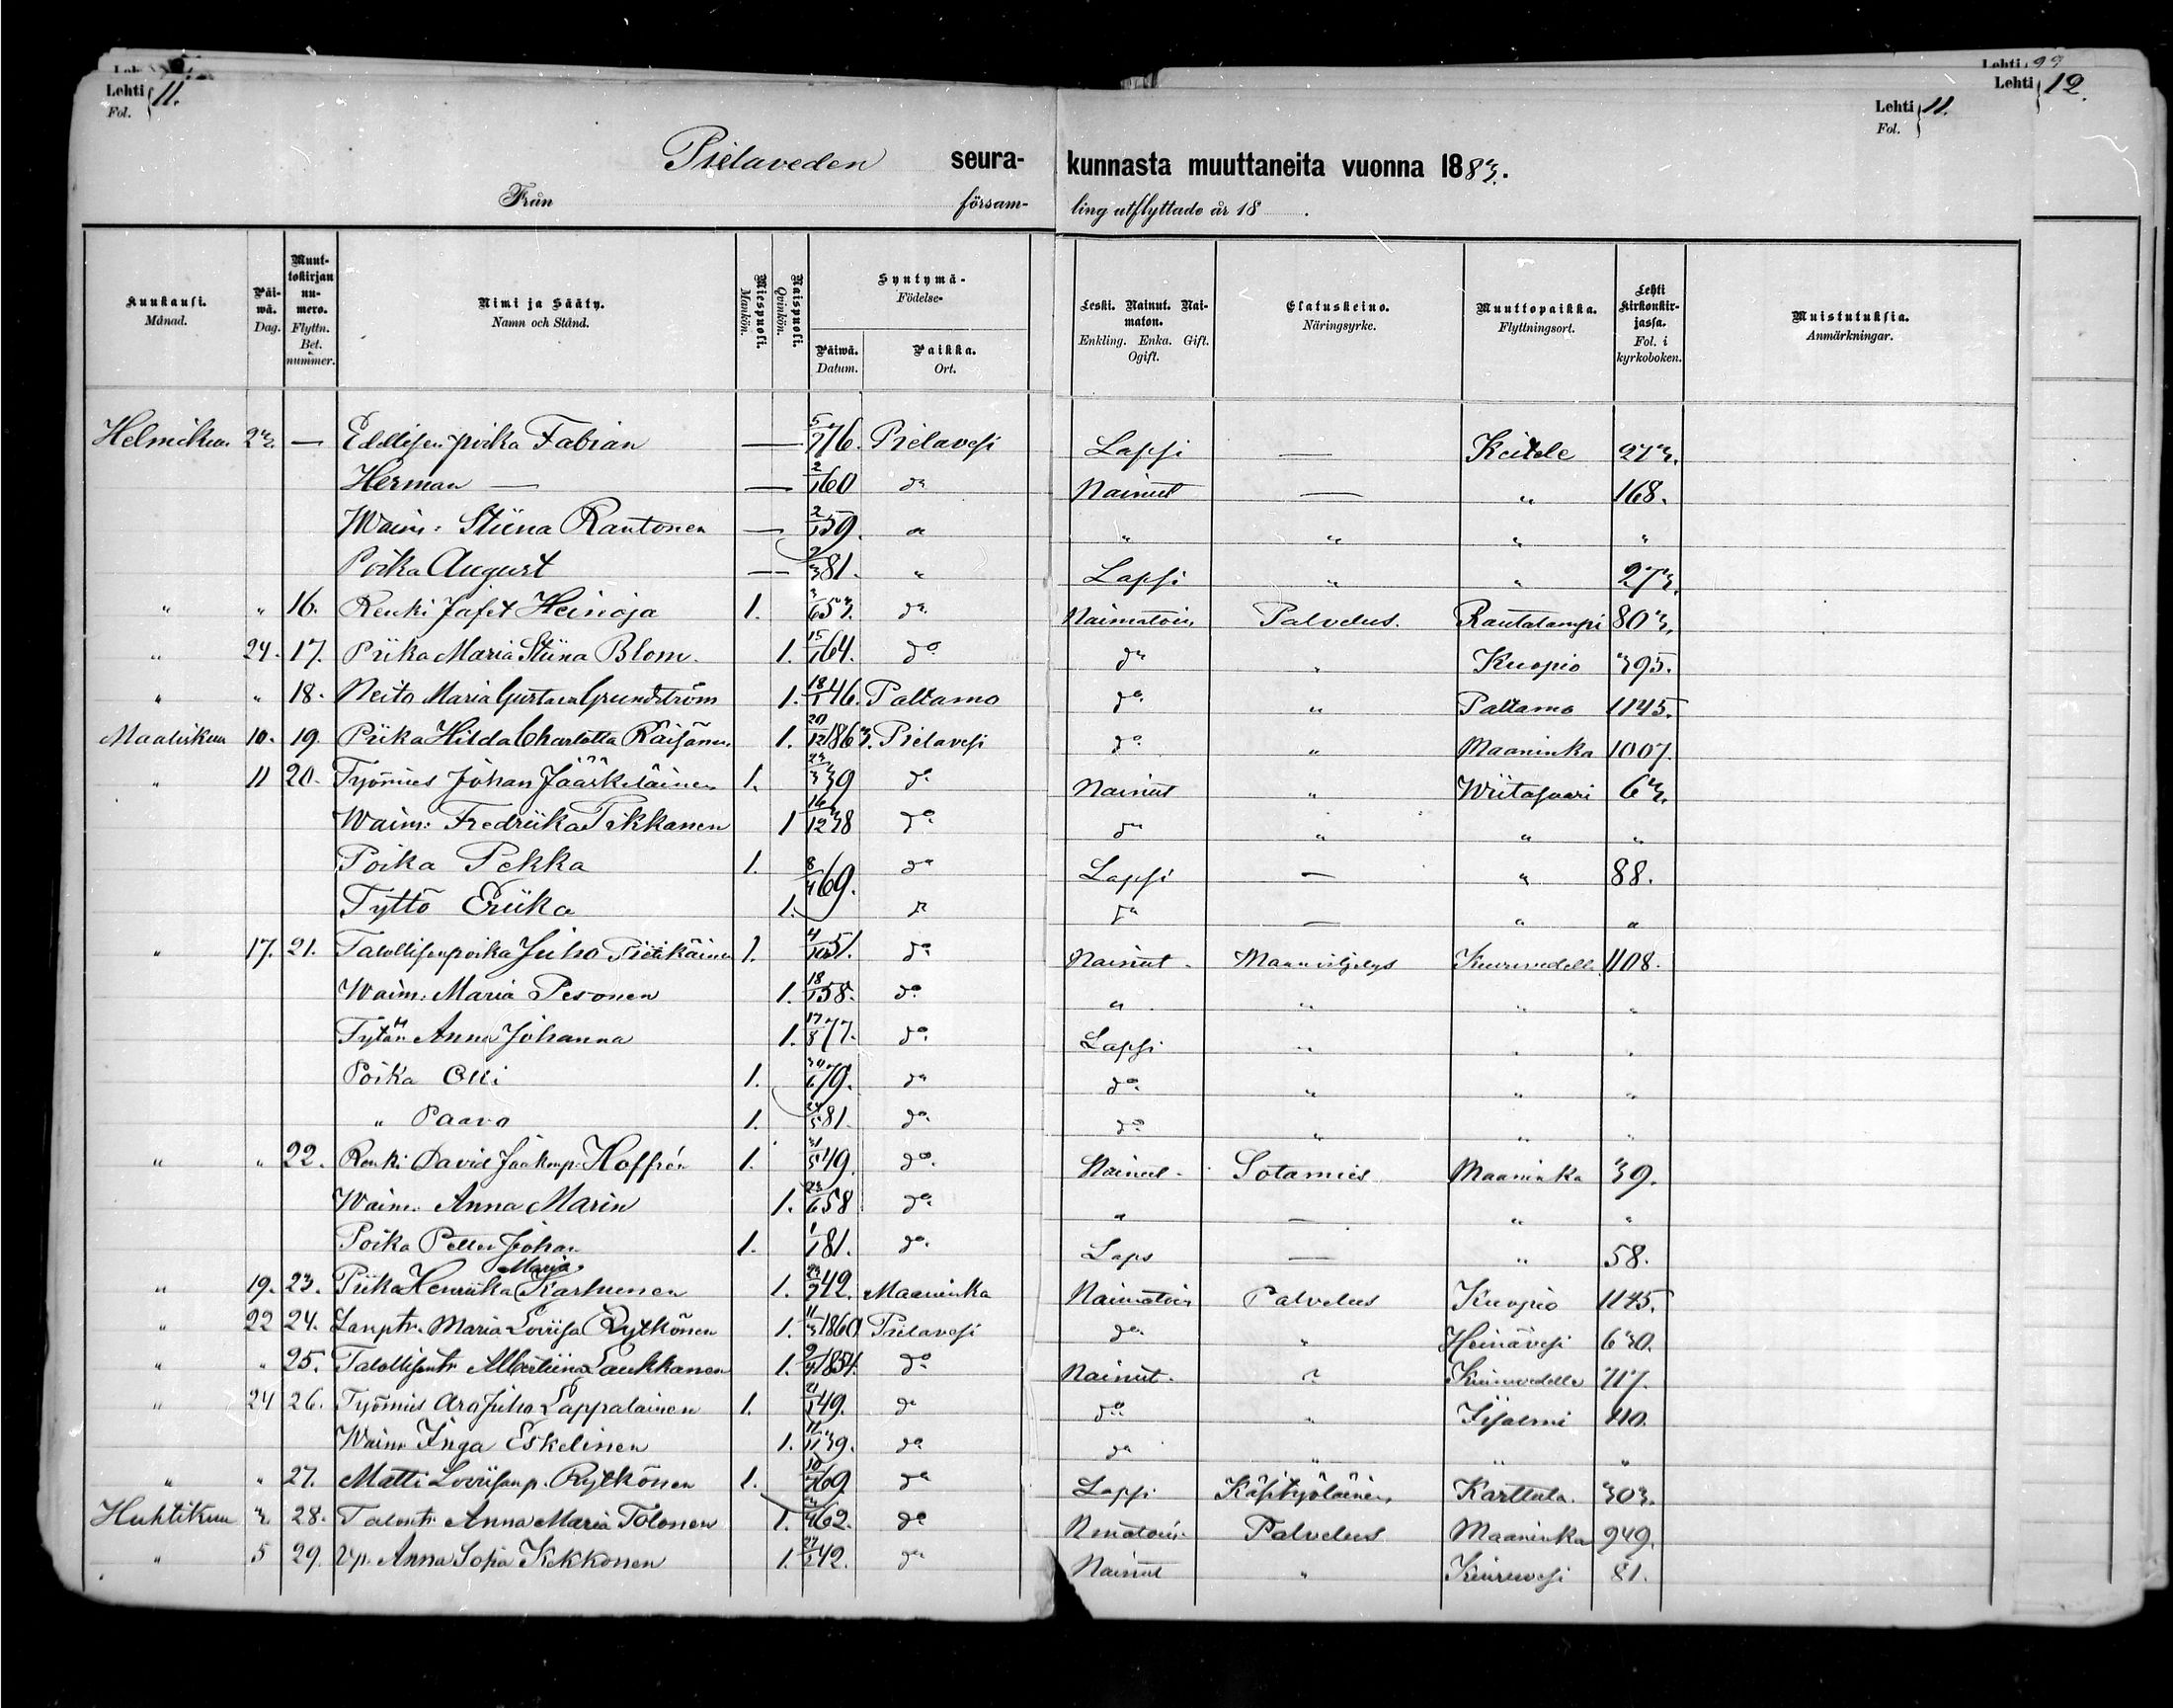 Lehti 99
Lehti 12.
Lehti 11.
Fol.
Lehti 11.
Fol.
Pielaveden seura- kunnasta muuttaneita vuonna 1883.
Från försam- ling utflyttade år 18 .
Kuukausi. Månad. Päiwä. Dag. Muuttokirjan numero. Flyttn. Bet. nummer. Nimi ja Sääty. Namn och Stånd. Miespuoli. Mankön. Naispuoli. Qvinkön. Syntymä- Födelse- Päiwä. Datum. Paikka. Ort. Leski. Nainut. Naimaton. Enkling. Enka. Gift. Ogift. Elatuskeino. Näringsyrke. Muuttopaikka. Flyttningsort. Lehti kirkonkirjassa. Fol. i kyrkoboken. Muistutuksia. Anmärkningar.
Helmikuu 23. — Edellisen poika Fabian — 5/7 76. Pielavesi Lapsi — Keitele 273.
Herman — — 2/1 60 do Nainut — " 168.
Waim: Stiina Rautonen — 2/1 59. " " " " "
Poika August — 81. " Lapsi " " 273.
" " 16. Renki Jafet Heinoja 1. 6 53. do Naimatoin Palvelus. Rautalampi 803.
" 24. 17. Piika Maria Stiina Blom. 1. 15/1 64. do do " Kuopio 395.
" " 18. Neito Maria Gustava Grundström 1. 18/1 46. Paltamo do " Paltamo 1145.
Maaliskuu 10. 19. Piika Hilda Charlotta Räisänen 1. 20/12 1863. Pielavesi do " Maaninka 1007.
" 11 20. Työmies Johan Jääskeläinen 1. 23/3 39 do Nainut " Wiitasaari 63.
Waim: Fredriika Pekkanen 1 16/12 38 do do " " "
Poika Pekka 1. 8/4 69. do Lapsi — " 88.
Tyttö Eriika 1. do do — " "
" 17. 21. Talollisenpoika Juho Pietikäinen 1. 4/10 51. do Nainut. Maanviljelys Kiuruvedelle 1108.
Waim: Maria Pesonen 1. 18/1 58. do " " " "
Tytär Anna Johanna 1. 17/8 77. do Lapsi " " "
Poika Olli 1. 30/6 79. do do " " "
" Paavo 1. 24/5 81. do do " " "
" " 22. Renki David Jaakonp. Hoffrén 1. 31/5 49. do. Nainut. Sotamies Maaninka 39.
Waim. Anna Marin 1. 23/6 58 do " — " "
Poika Petter Johan 1. 1/1 81. do Laps — " 58.
" 19. 23. Piika Henriika Maria Karhunen 1. 23/9 42. Maaninka Naimatoin Palvelus Kuopio 1145.
" 22 24. Lamptr. Maria Loviisa Rytkönen 1. 11/3 1860 Pielavesi do " Heinävesi 630.
" " 25. Talollisentr. Albertiina Laukkanen 1. 9/4 1854. do Nainut. ? Kiuruvedelle 717.
" 24 26. Työmies Aro Juho Lappalainen 1. 21/1 49. do do " Iisalmi 110.
Waim Inga Eskelinen 1. 11/11 39. do do " " "
" " 27. Matti Loviisanp. Rytkönen 1. 10/7 69. do Lapsi Käsityöläinen Karttula. 303.
Huhtikuu 3. 28. Talontr. Anna Maria Tolonen 1. 62. do Nmatoin. Palvelus Maaninka 949.
" 5 29. Anna Sofia Kekkonen 1. 24/1 42. do Nainut " Kiuruvesi 81.